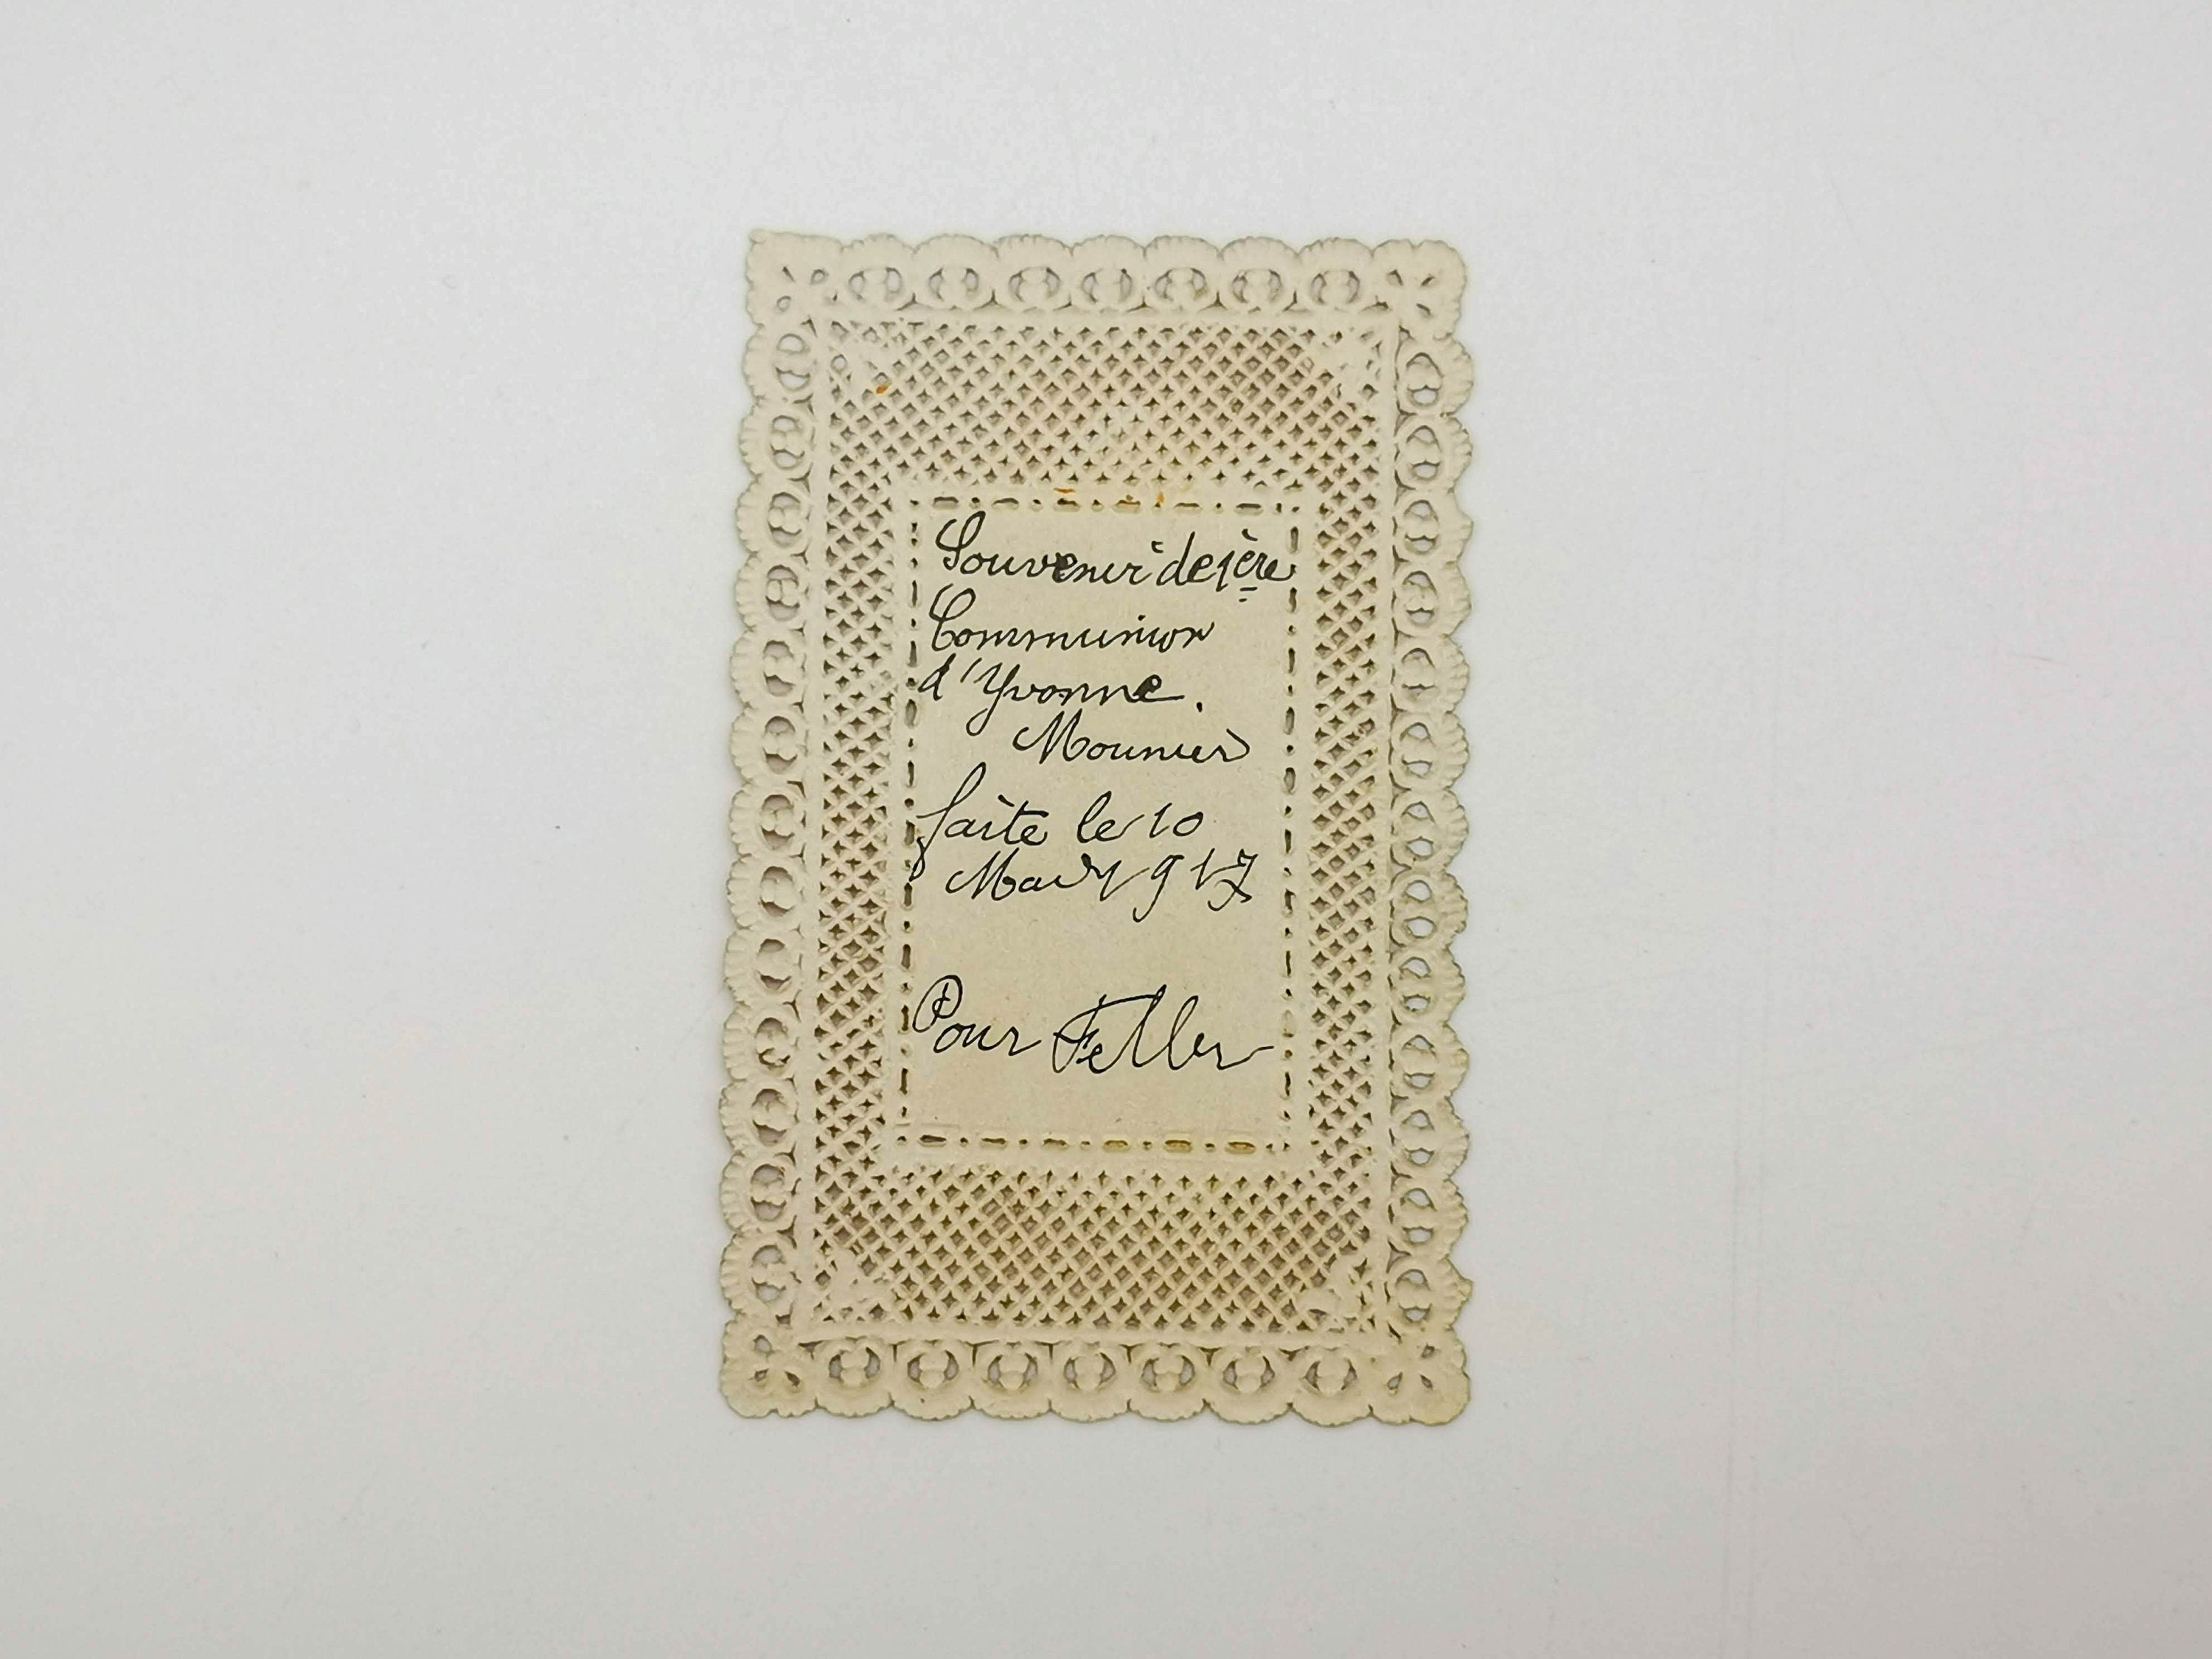 Souvenir de 1ère
Communion
d'Yvonne.
Mounier
faite le 10
Mai 1917
Pour Feller